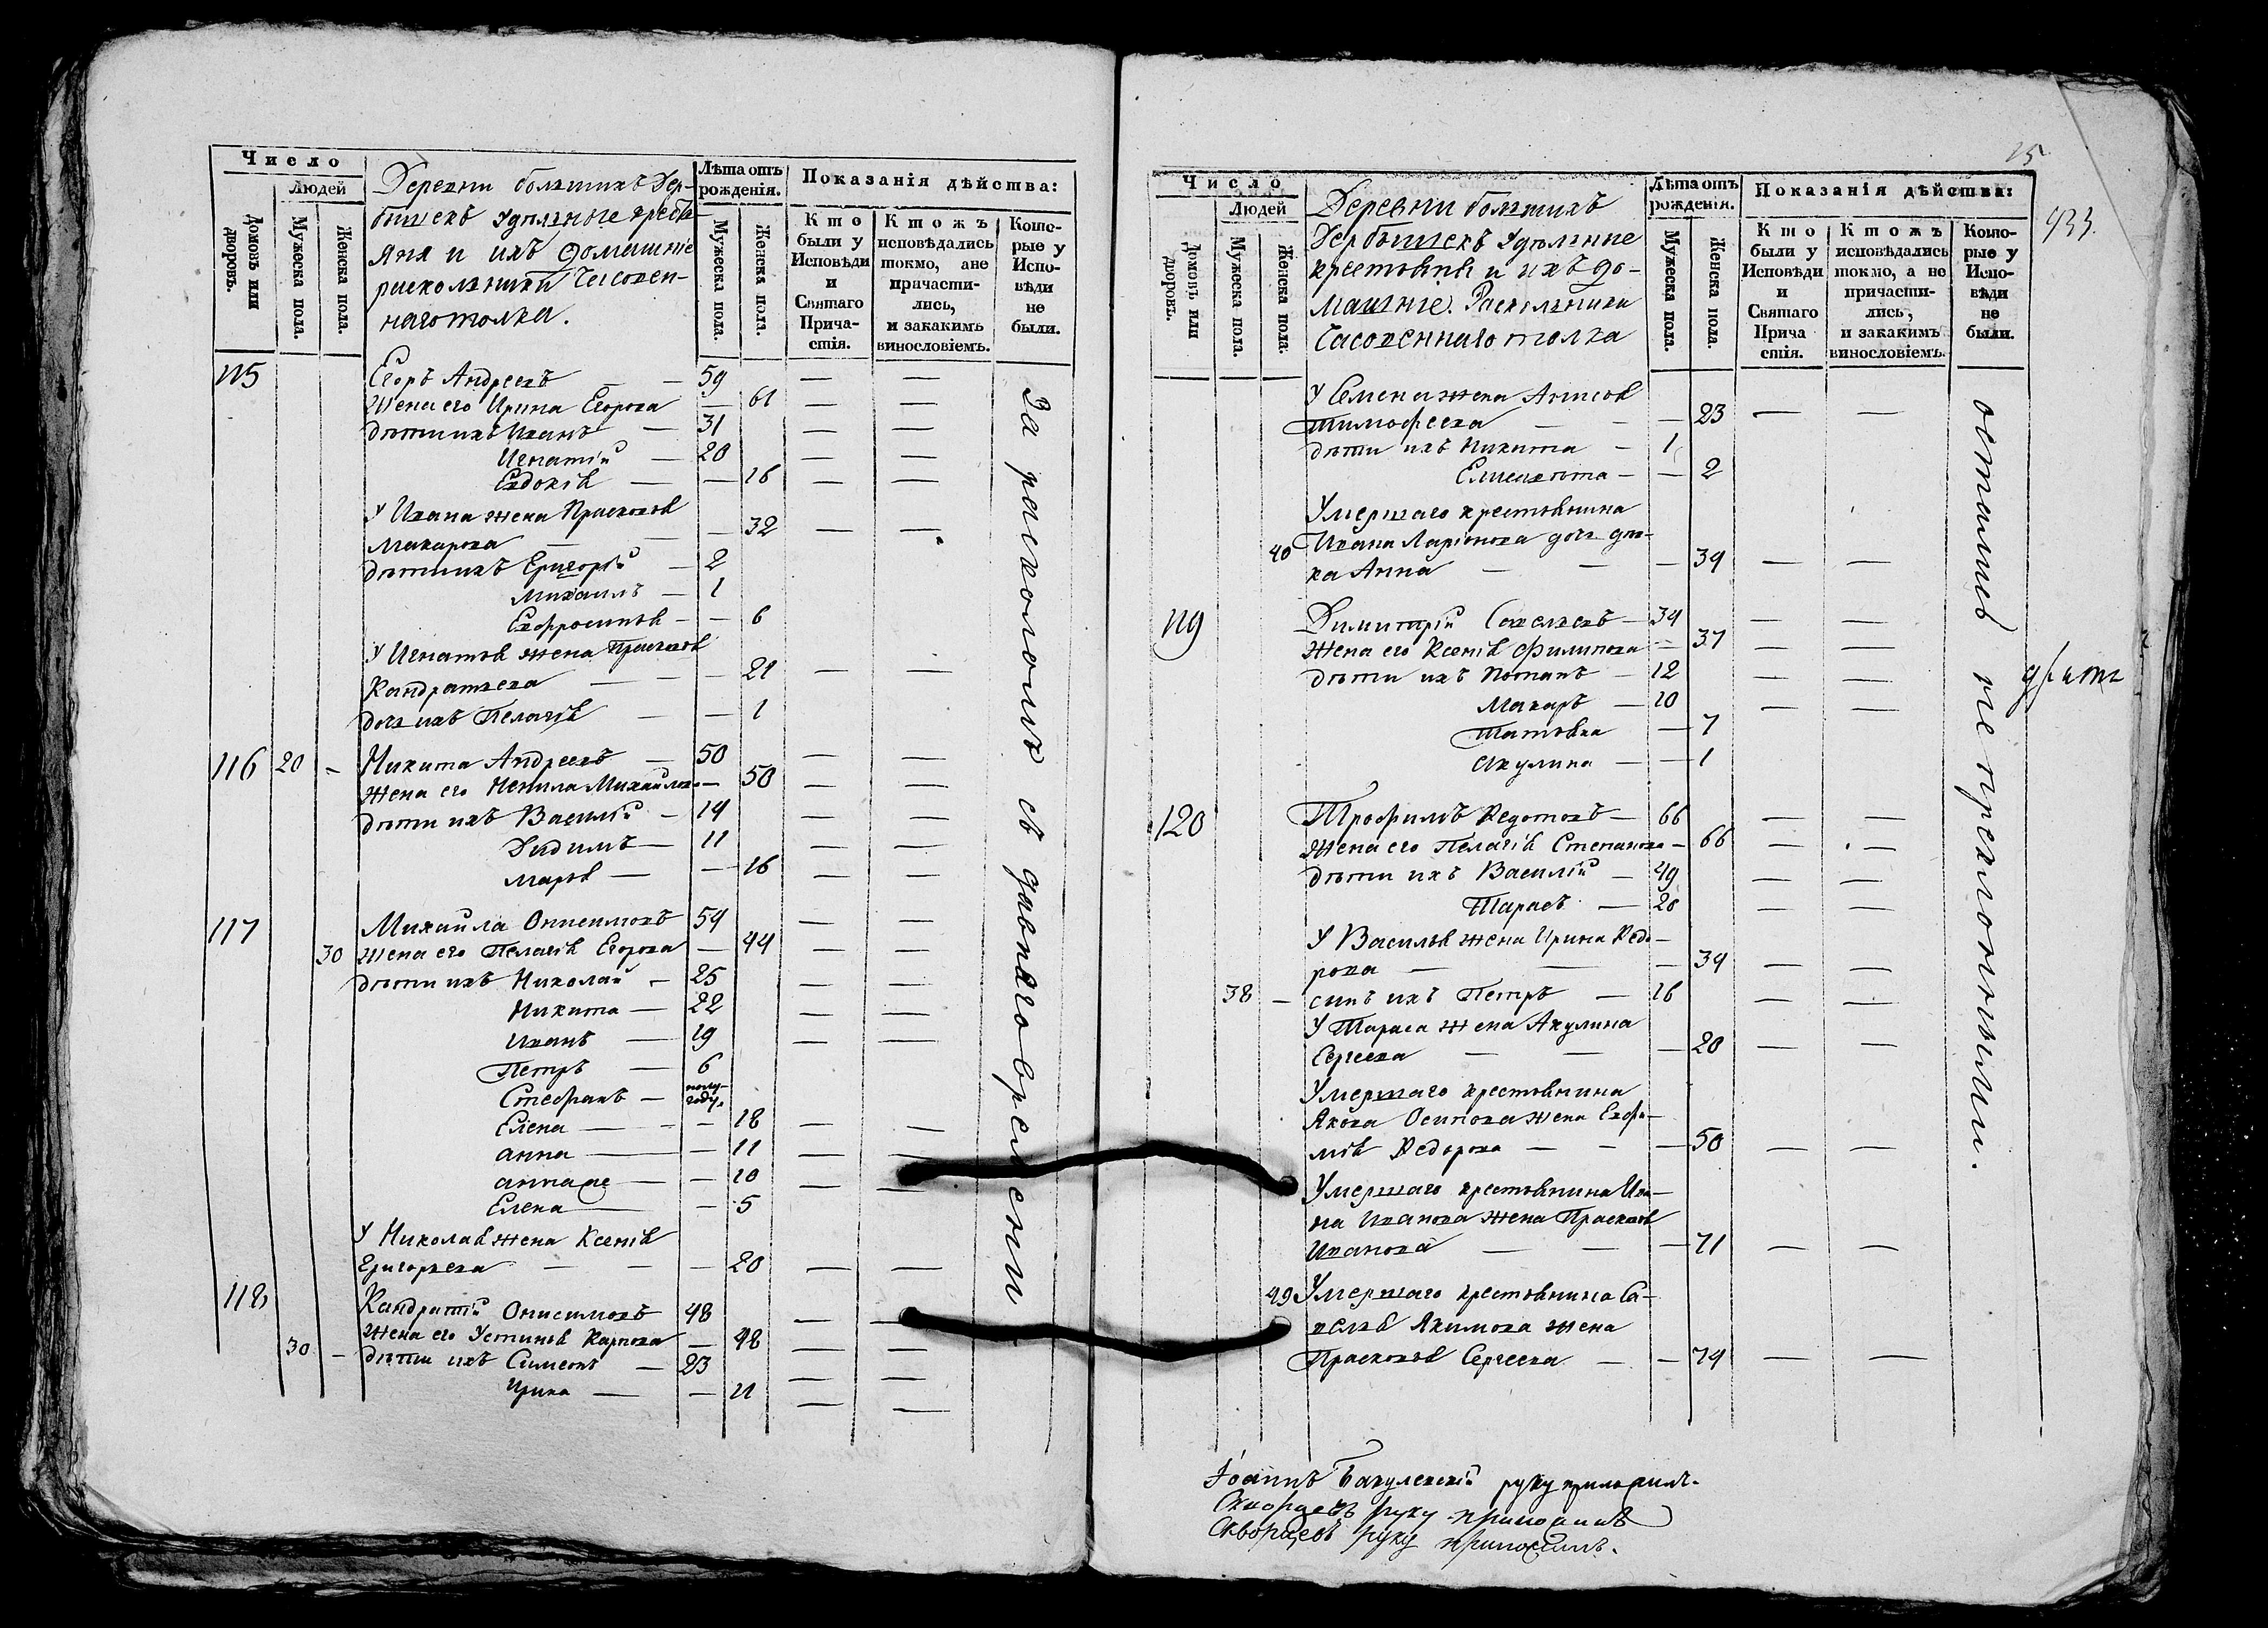 Число
Людей
Домовъ или дворовъ.
Мужеска пола.
Женска пола.
Деревни большихъ Дер-
бышекъ Удѣльные кресть-
яня и ихъ домашніе
раскольники Часовен-
наго толка.
Лѣта отъ рожденія.
Мужеска пола.
Женска пола.
Показанія дѣйства:
Кто были у Исповѣди и Святаго Прича-стія.
Ктожъ исповѣдались токмо, ане причасти-лись, и закакимъ винословіемъ.
Кото-рые у Испо-вѣди не были.
115 Егоръ Андреевъ — 59 — —
Жена его Ирина Егорова — 61 — —
дѣти ихъ Иванъ — 31 — —
Игнатій — 20 — —
Евдокія — — 16 — —
У Ивана жена Прасковья
Макарова — — — 32 — —
дѣти ихъ Григорій — 2
Михаилъ — 1
Евфросинья — — 6
У Игнатья жена Прасковья
Кандратьева — — — 21 — —
дочь ихъ Пелагія — — 1
116 20 – Никита Андреевъ — 50 — —
Жена его Ненила Михайлова — 50 — —
дѣти ихъ Василій — 14 — —
Дидимъ — 11 — —
Марья — — 16 — —
117 Михаила Онисимовъ 54 — —
30 Жена его Пелагія Егорова — 44 — —
дѣти ихъ Николай — 25 — —
Никита — 22 — —
Иванъ — 19 — —
Петръ — 6
Стефанъ — полу-
году.
Елена — — 18 — —
Анна — — 11 — —
Анна же — — 10 — —
Елена — — 5
У Николая жена Ксенія
Григорьева — — — 20 — —
118 Кандратій Онисимовъ 48 — —
Жена его Устинья Карпова — 48 — —
30 – дѣти ихъ Симеонъ — 23 — —
Ирина — — 11 — —
За расколомъ съ давняго времени
15
Число
Людей
Домовъ или дворовъ.
Мужеска пола.
Женска пола.
Деревни большихъ
Дербышекъ Удѣльные
крестьяня и ихъ до-
машніе. Раскольники
Часовеннаго толка
Лѣта отъ рожденія.
Мужеска пола.
Женска пола.
Показанія дѣйства:
Кто были у Исповѣди и Святаго Прича стія.
Ктожъ исповѣдались токмо, а не причасти-лись, и закакимъ винословіемъ.
Кото-рые у Испо-вѣди не были.
433.
У Семена жена Анисья
Тимофеева — — — 23 — —
дѣти ихъ Никита — 1
Елисавѣта — — 2
Умершаго крестьянина
40 Ивана Ларіонова дочь дѣв-
ка Анна — — — 39 — —
119 Димитрій Савельевъ — 34 — —
Жена его Ксенія Филипова — 37 — —
дѣти ихъ Потапъ — 12 — —
Макаръ — 10 — —
Татьяна — 7
Акулина — — 1
120 Трофимъ Ѳедотовъ — 66 — —
Жена его Пелагія Степанова — 66 — —
дѣти ихъ Василій — 49 — —
Тарасъ — 20 — —
У Василья жена Ирина Ѳедо-
рова — — — 39 — —
38 – сынъ ихъ Петръ — 16 — —
У Тараса жена Акулина
Сергеева — — — 20 — —
Умершаго крестьянина
Якова Осипова жена Евфи-
мія Ѳедорова — — — 50 — —
Умершаго крестьянина Ива-
на Иванова жена Прасковья
Иванова — — — 71 — —
49 Умершаго крестьянина Са-
велья Якимова жена
Прасковья Сергеева — — 74 — —
остаются непреклонными.
Іоаннъ Бакулевскій руку приложилъ.
руку приложилъ
Скворцовъ руку приложилъ.